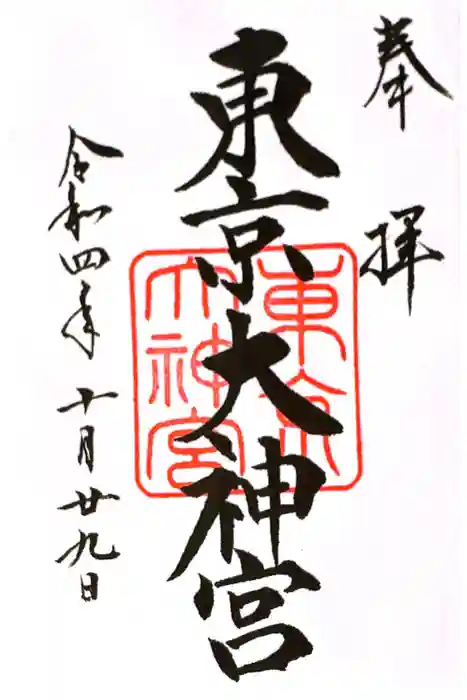 奉拝
東京大神宮
東京
大神宮
令和四年十月廿九日